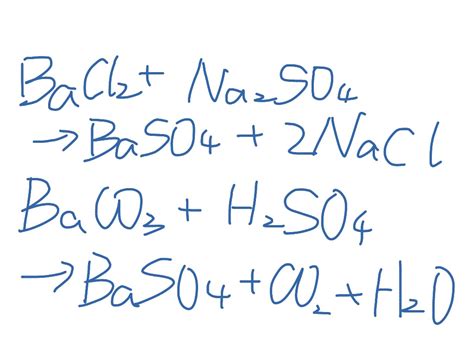 BaCl₂ + Na₂SO₄
→ BaSO₄ + 2NaCl
BaCO₃ + H₂SO₄
→ BaSO₄ + CO₂ + H₂O